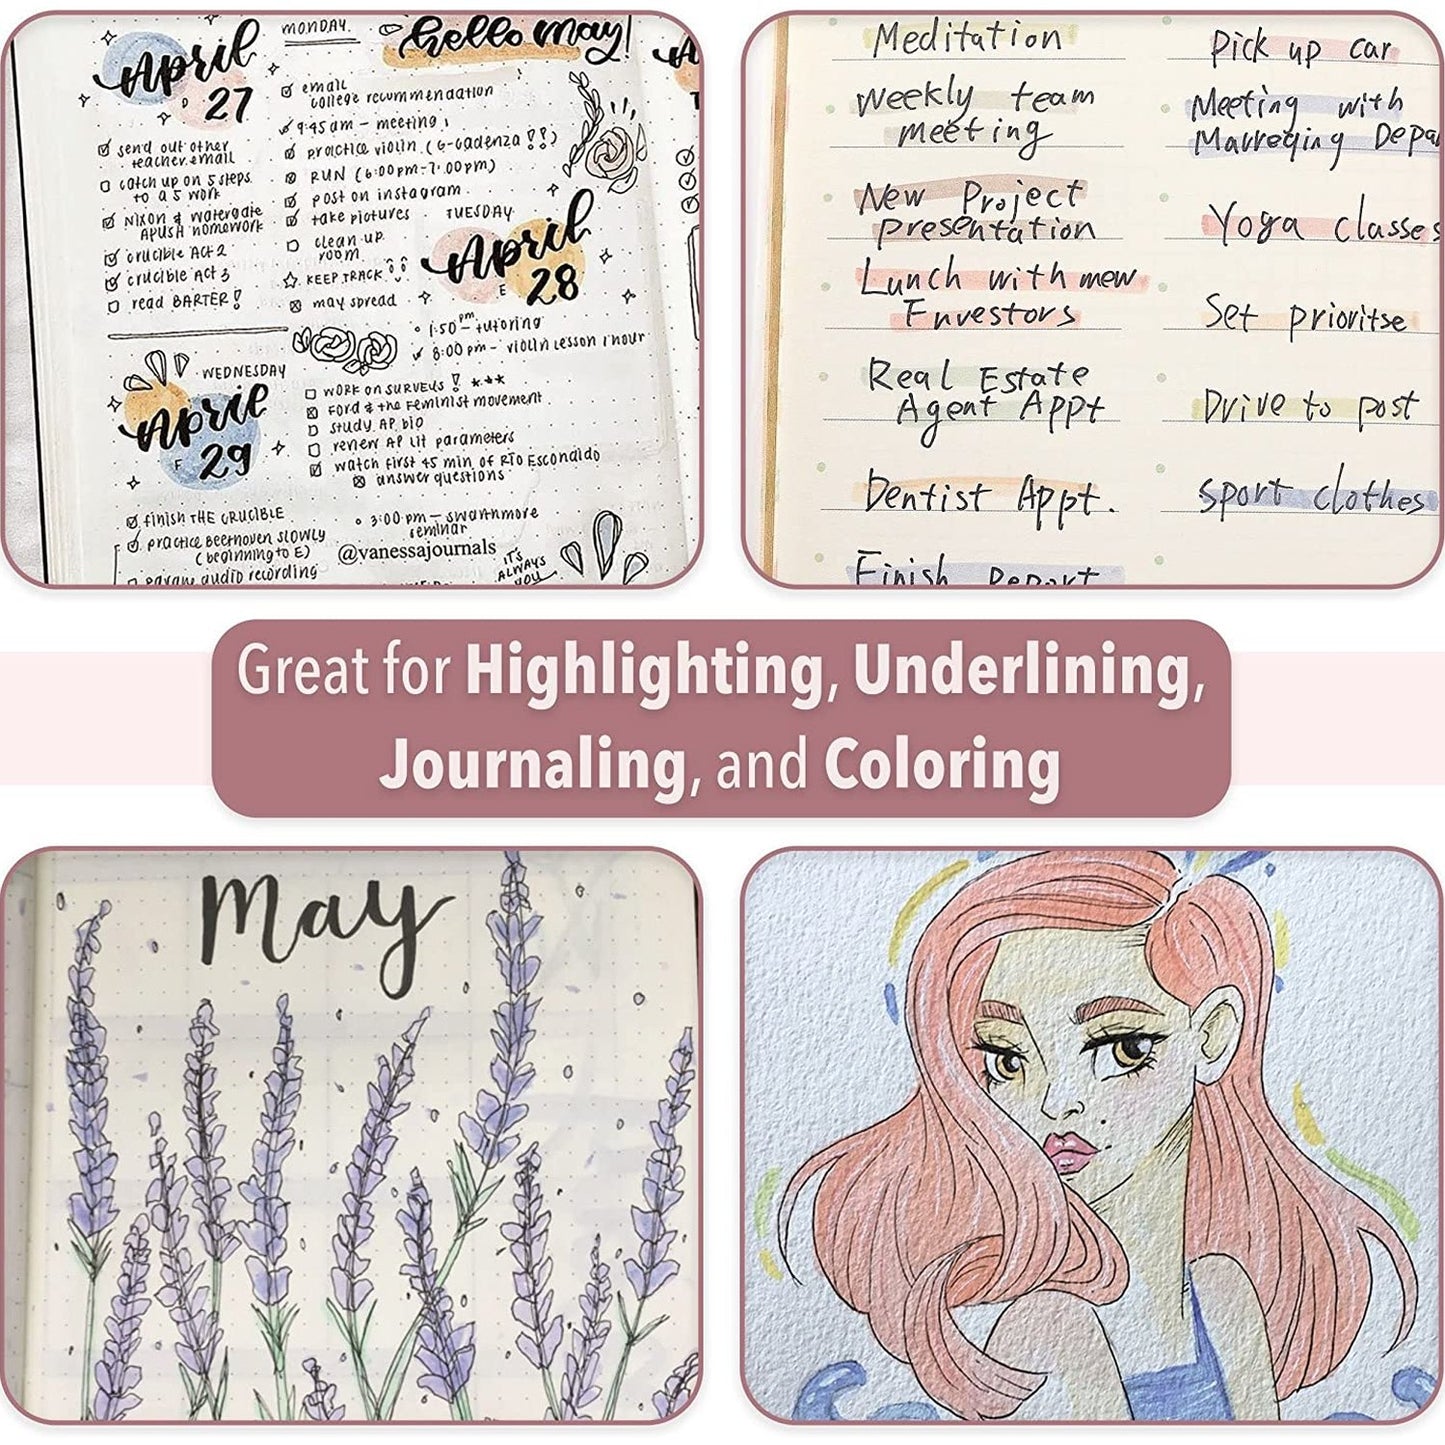 MONDAY.
hello may!
April
27
☑ email
college recommendation
9:45 am - meeting
practice violin (6-cadenza!!)
RUN (6:00pm-7:00pm)
post on instagram
take pictures
clean up
room
KEEP TRACK
may spread
send out other
teacher email
catch up on 5 steps
to a 5 work
Nixon & Watergate
APUSH homework
crucible Act 2
crucible Act 3
read BARTER!
TUESDAY
April
28
1:50 pm - tutoring
8:00 pm - violin lesson 1 hour
WEDNESDAY
April
29
WORK ON SURVEYS!
Ford & the Feminist movement
study AP bio
renew AP lit parameters
watch first 45 min of Río Escondido
answer questions
finish THE CRUCIBLE
practice Beethoven SLOWLY
(beginning to E)
audio recording
3:00 pm - swarthmore
seminar
@vanessajournals
IT'S
ALWAYS
YOU
Meditation
Weekly team
meeting
New Project
presentation
Lunch with mew
Envestors
Real Estate
Agent Appt
Dentist Appt.
Finish Report
Pick up car
Meeting with
Marreqing Depa
Yoga classes
Set prioritse
Drive to post
Sport clothes
Great for Highlighting, Underlining,
Journaling, and Coloring
May